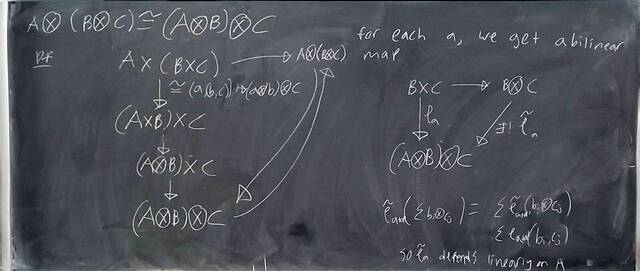 A⊗(B⊗C)≅(A⊗B)⊗C
pf
A×(B×C) → A⊗(B⊗C)
≅ (a,(b,c)) ↦ (a⊗b)⊗c
(A×B)×C
(A⊗B)×C
(A⊗B)⊗C
for each a, we get a bilinear
map
B×C → B⊗C
l_a
∃! l̃_a
(A⊗B)⊗C
(Σ b_i⊗c_i) =
so l̃_a depends linearly on A